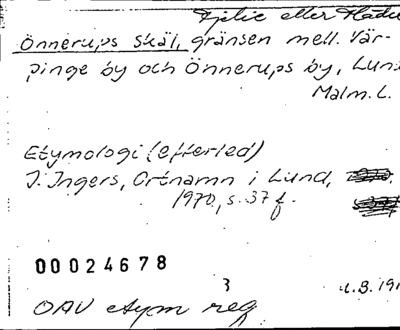 eller
Önnerups skäl, gränsen mell. Vär-
pinge by och Önnerups by, Lund
Malm. L.
Etymologi (efterled)
J. Ingers, Ortnamn i Lund,
1970, s. 37 f.
00024678
3
OAU etym reg